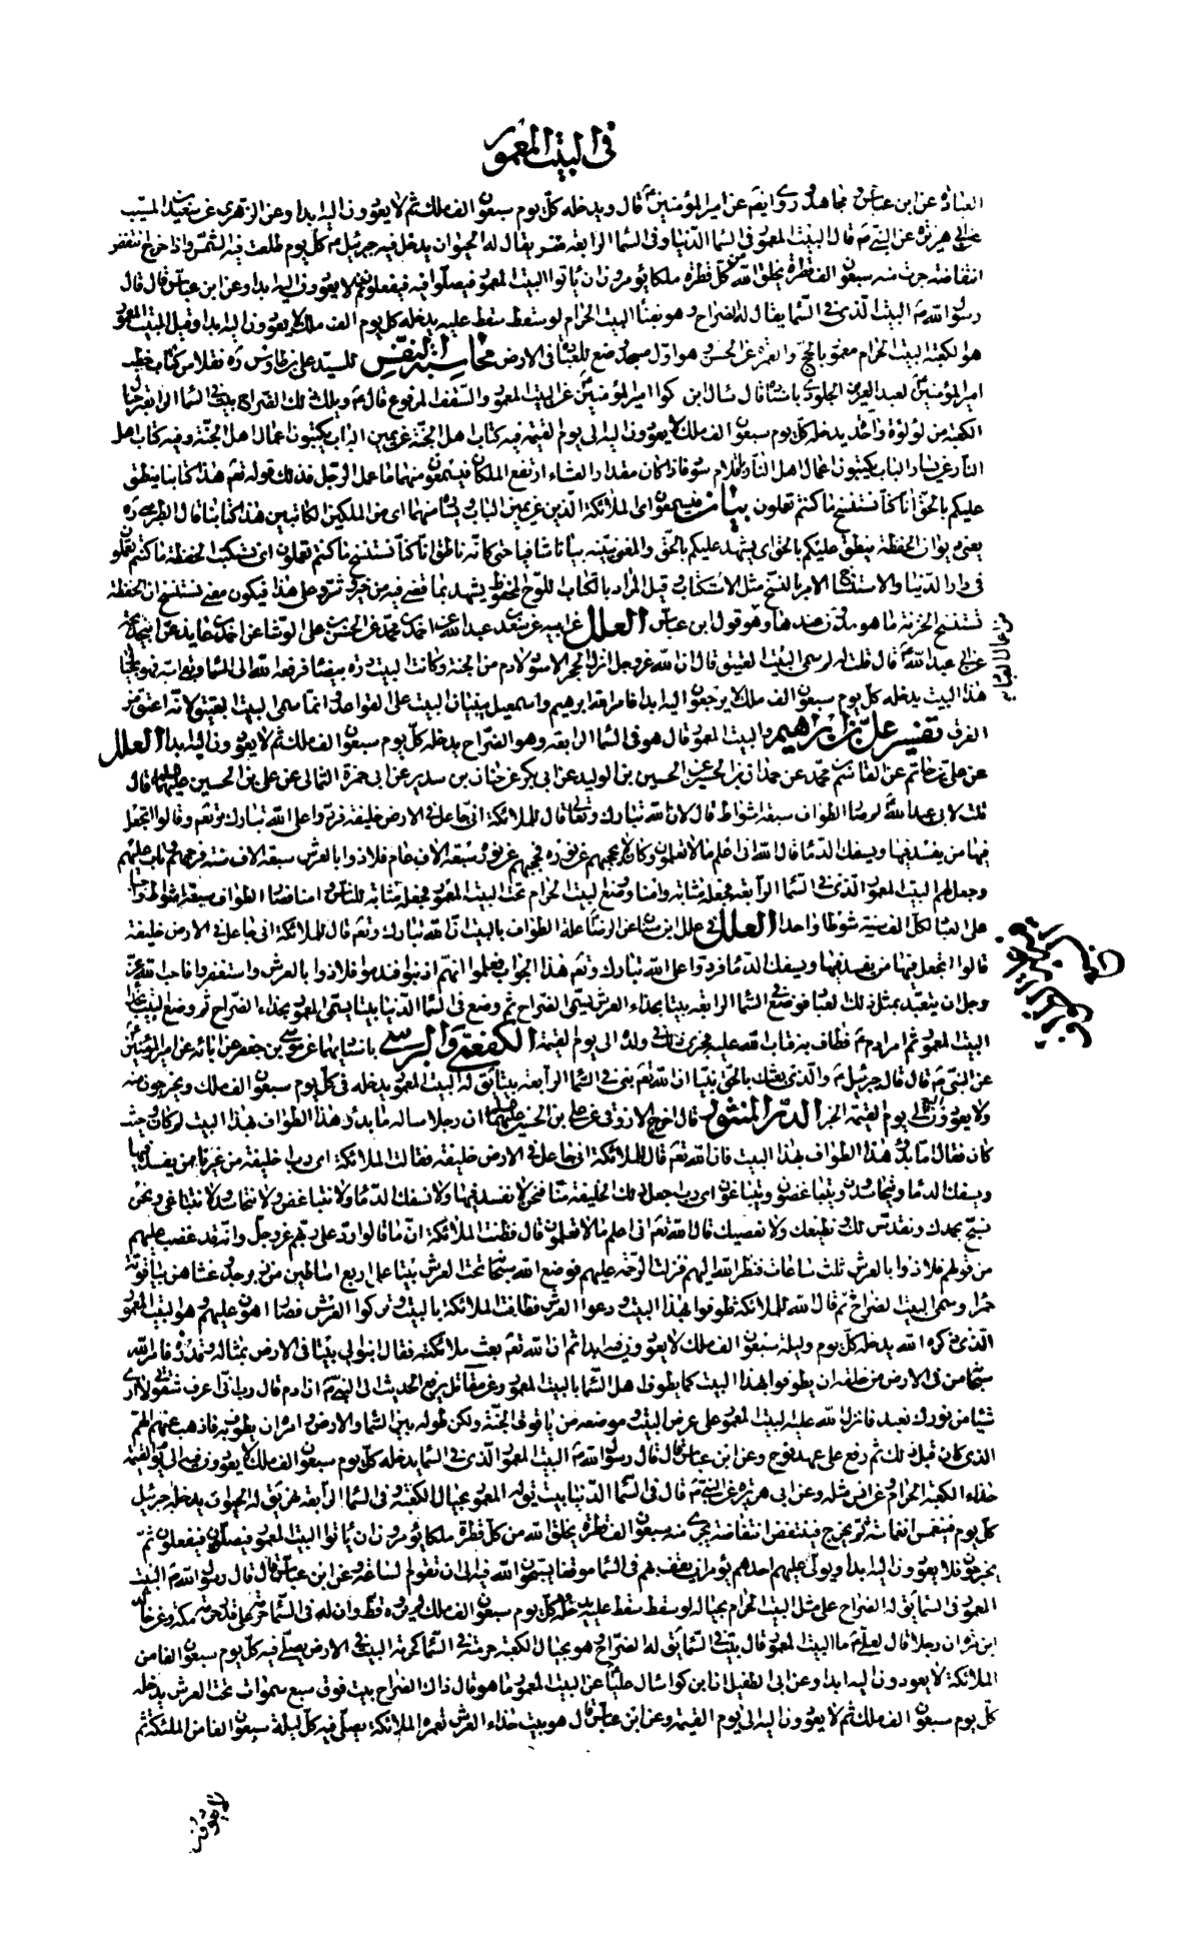 في البيت المعمور
العبادة عن ابن عباس ومجاهد وروي ايضا عن امير المؤمنين ع قال ويدخله كل يوم سبعون الف ملك ثم لا يعودون اليه ابدا وعن الزهري عن سعيد بن المسيب
عن ابي هريرة عن النبي ص قال البيت المعمور في السماء الدنيا وفي السماء الرابعة نهر يقال له الحيوان يدخل فيه جبرئيل ع كل يوم طلعت فيه الشمس واذا خرج انتفض
انتفاضة جرت منه سبعون الف قطرة يخلق الله من كل قطرة ملكا يؤمرون ان ياتوا البيت المعمور فيصلوا فيه فيفعلون ثم لا يعودون اليه ابدا وعن ابن عباس قال قال
رسول الله ص البيت الذي في السماء يقال له الضراح وهو بفناء البيت الحرام لو سقط سقط عليه يدخله كل يوم الف ملك لا يعودون اليه ابدا وقيل البيت المعمور
هو الكعبة البيت الحرام معمور بالحج والعمرة عن الحسن وهو اول مسجد وضع للعبادة في الارض محاسبة النفس للسيد علي بن طاوس ره نقلا من كتاب خطب
امير المؤمنين ع لعبد العزيز الجلودي باسناده قال سال ابن كوا امير المؤمنين ع عن البيت المعمور والسقف المرفوع قال ع ويلك ذلك الضراح بيت في السماء الرابعة حيال
الكعبة من لؤلؤة واحدة يدخله كل يوم سبعون الف ملك لا يعودون اليه الى يوم القيمة فيه كتاب اهل الجنة عن يمين الباب يكتبون اعمال اهل الجنة وفيه كتاب اهل
النار عن يسار الباب يكتبون اعمال اهل النار باقلام سود فاذا كان مقدار العشاء ارتفع الملكان فيسمعون منهما ما عمل الرجل فذلك قوله تعم هذا كتابنا ينطق
عليكم بالحق انا كنا نستنسخ ما كنتم تعملون بيان فيسمعون اي الملائكة الذين عن يمين الباب ويساره منهما اي من الملكين الكاتبين هذا كتابنا قال الطبرسي ره
يعني ديوان الحفظة ينطق عليكم بالحق اي يشهد عليكم بالحق والمعنى يبينه بيانا شافيا حتى كانه ناطق انا كنا نستنسخ ما كنتم تعملون اي نستكتب الحفظة ما كنتم تعملون
في دار الدنيا والاستنساخ الامر بالنسخ مثل الاستكتاب وقيل المراد بالكتاب اللوح المحفوظ يشهد بما قضي فيه من خير وشر وعلى هذا فيكون معنى نستنسخ ان الحفظة
تستنسخ الخزنة ما هو مدون عندها وهو قول ابن عباس العلل عن ابيه عن سعد بن عبد الله عن احمد بن محمد عن الحسن بن علي الوشا عن احمد بن عايذ عن ابي خديجة
عن ابي عبد الله ع قال قلت له لم سمي البيت العتيق قال ان الله عز وجل انزل الحجر الاسود لادم من الجنة وكانت البيت درة بيضاء فرفعه الله الى السماء وبقي اسه فهو بحيال
هذا البيت يدخله كل يوم سبعون الف ملك لا يرجعون اليه ابدا فامر الله ابرهيم واسمعيل يبنيان البيت على القواعد وانما سمي البيت العتيق لانه اعتق من
الغرق تفسير علي بن ابرهيم والبيت المعمور قال هو في السماء الرابعة وهو الضراح يدخله كل يوم سبعون الف ملك ثم لا يعودون اليه ابدا العلل
عن علي بن حاتم عن القاسم بن محمد عن حمدان بن الحسين عن الحسين بن الوليد عن ابي بكر عن حنان بن سدير عن ابي حمزة الثمالي عن علي بن الحسين عليهما السلم قال
قلت لابي عبد الله لم صار الطواف سبعة اشواط قال لان الله تبارك وتعالى قال للملائكة اني جاعل في الارض خليفة فردوا على الله تبارك وتعم وقالوا اتجعل
فيها من يفسد فيها ويسفك الدماء قال الله اني اعلم ما لا تعلمون وكان لا يحجبهم عن نوره فحجبهم عن نوره سبعة الاف عام فلاذوا بالعرش سبعة الاف سنة فرحمهم وتاب عليهم
وجعل لهم البيت المعمور الذي في السماء الرابعة فجعله مثابة وامنا ووضع البيت الحرام تحت البيت المعمور فجعله مثابة للناس وامنا فصار الطواف سبعة اشواط واجبا
على العباد لكل الف سنة شوطا واحدا العلل في علل ابن سنان عن الرضا ع علة الطواف بالبيت ان الله تبارك وتعم قال للملائكة اني جاعل في الارض خليفة
قالوا اتجعل فيها من يفسد فيها ويسفك الدماء فردوا على الله تبارك وتعم هذا الجواب فعلموا انهم اذنبوا فندموا فلاذوا بالعرش واستغفروا فاحب الله عز
وجل ان يتعبد بمثل ذلك العباد فوضع في السماء الرابعة بيتا بحذاء العرش يسمى الضراح ثم وضع في السماء الدنيا بيتا يسمى المعمور بحذاء الضراح ثم وضع البيت بحذاء
البيت المعمور ثم امر ادم ع فطاف به فتاب الله عليه فجرى ذلك في ولده الى يوم القيمة الكفعمي والبرسي باسنادهما عن موسى بن جعفر عن ابائه عن امير المؤمنين
عن النبي ص قال قال جبرئيل ع والذي بعثك بالحق نبيا ان الله تعم بنى في السماء الرابعة بيتا يق له البيت المعمور يدخله في كل يوم سبعون الف ملك ويخرجون منه
ولا يعودون اليه الى يوم القيمة الخبر الدر المنثور قال اخرج الازرقي عن علي بن الحسين عليهما السلم ان رجلا ساله ما بدء هذا الطواف بهذا البيت لم كان وحيث
كان فقال اما بدء هذا الطواف بهذا البيت فان الله تعم قال للملائكة اني جاعل في الارض خليفة فقالت الملائكة اي رب اخليفة من غيرنا من يفسد فيها
ويسفك الدماء ويتحاسدون ويتباغضون ويتباغون اي رب اجعل ذلك الخليفة منا فنحن لا نفسد فيها ولا نسفك الدماء ولا نتباغض ولا نتحاسد ولا نتباغى ونحن
نسبح بحمدك ونقدس لك ونطيعك ولا نعصيك قال الله تعم اني اعلم ما لا تعلمون قال فظنت الملائكة ان ما قالوا رد على ربهم عز وجل وانه قد غضب عليهم
من قولهم فلاذوا بالعرش ثلث ساعات فنظر الله اليهم فنزلت الرحمة عليهم فوضع الله سبحانه تحت العرش بيتا على اربع اساطين من زبرجد وغشاهن بياقوتة
حمرا وسمى البيت الضراح ثم قال الله للملائكة طوفوا بهذا البيت ودعوا العرش فطافت الملائكة بالبيت وتركوا العرش فصار اهون عليهم وهو البيت المعمور
الذي ذكره الله يدخله كل يوم وليلة سبعون الف ملك لا يعودون فيه ابدا ثم ان الله تعم بعث ملائكته فقال ابنوا لي بيتا في الارض بمثاله وقدره فامر الله
سبحانه من في الارض من خلقه ان يطوفوا بهذا البيت كما يطوف اهل السماء بالبيت المعمور وعن مقاتل يرفع الحديث الى النبي ص ان ادم قال رب اني اعرف شقوتي لا ارى
شيئا من نورك نعبد فانزل الله عليه البيت المعمور على عرض البيت وموضعه من ياقوتة الجنة ولكن طوله بين السماء والارض وامره ان يطوف به فاذهب عنهم الهم
الذي كان قبل ذلك ثم رفع على عهد نوح وعن ابن عباس قال قال رسول الله ص البيت المعمور الذي في السماء يدخله كل يوم سبعون الف ملك لا يعودون فيه الى يوم القيمة
حذاء الكعبة الحرام وعن انس مثله وعن ابي هريرة عن النبي ص قال في السماء الدنيا بيت يق له المعمور بحيال الكعبة وفي السماء الرابعة نهر يق له الحيوان يدخله جبرئيل
كل يوم فينغمس انغماسة ثم يخرج فينتفض انتفاضة يجري منه سبعون الف قطرة يخلق الله من كل قطرة ملكا يؤمرون ان ياتوا البيت المعمور فيصلون فيفعلون ثم
يخرجون فلا يعودون اليه ابدا ويولى عليهم احدهم يؤمر ان يقف بهم في السماء موقفا يسبحون الله فيه الى ان تقوم الساعة وعن ابن عباس قال قال رسول الله ص البيت
المعمور في السماء يق له الضراح على مثل البيت الحرام بحياله لو سقط سقط عليه يدخله كل يوم سبعون الف ملك لم يردوه قط وان له في السماء حرمة على قدر حرمة مكة وعن خالد
ابن عرعرة ان رجلا قال لعلي ع ما البيت المعمور قال بيت في السماء يق له الضراح وهو بحيال الكعبة حرمته في السماء كحرمة البيت في الارض يصلي فيه كل يوم سبعون الفا من
الملائكة لا يعودون اليه ابدا وعن ابي الطفيل ان ابن كوا سال عليا ع عن البيت المعمور ما هو قال ذاك الضراح بيت فوق سبع سموات تحت العرش يدخله
كل يوم سبعون الف ملك ثم لا يعودون اليه الى يوم القيمة وعن ابن عباس قال هو بيت حذاء العرش تعمره الملائكة يصلي فيه كل ليلة سبعون الفا من الملئكة ثم
لا يعودون